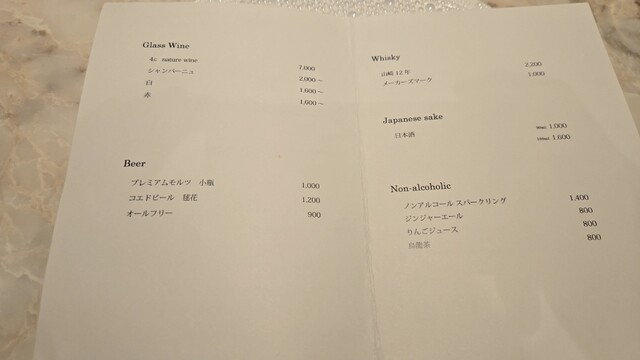 Glass Wine
4c nature wine 7,000
シャンパーニュ 2,000～
白 1,600～
赤 1,600～
Beer
プレミアムモルツ 小瓶 1,000
コエドビール 毬花 1,200
オールフリー 900
Whisky
山崎 12 年 2,200
メーカーズマーク 1,000
Japanese sake
日本酒 1,000
1,600
Non-alcoholic
ノンアルコール スパークリング 1,400
ジンジャーエール 800
りんごジュース 800
烏龍茶 800